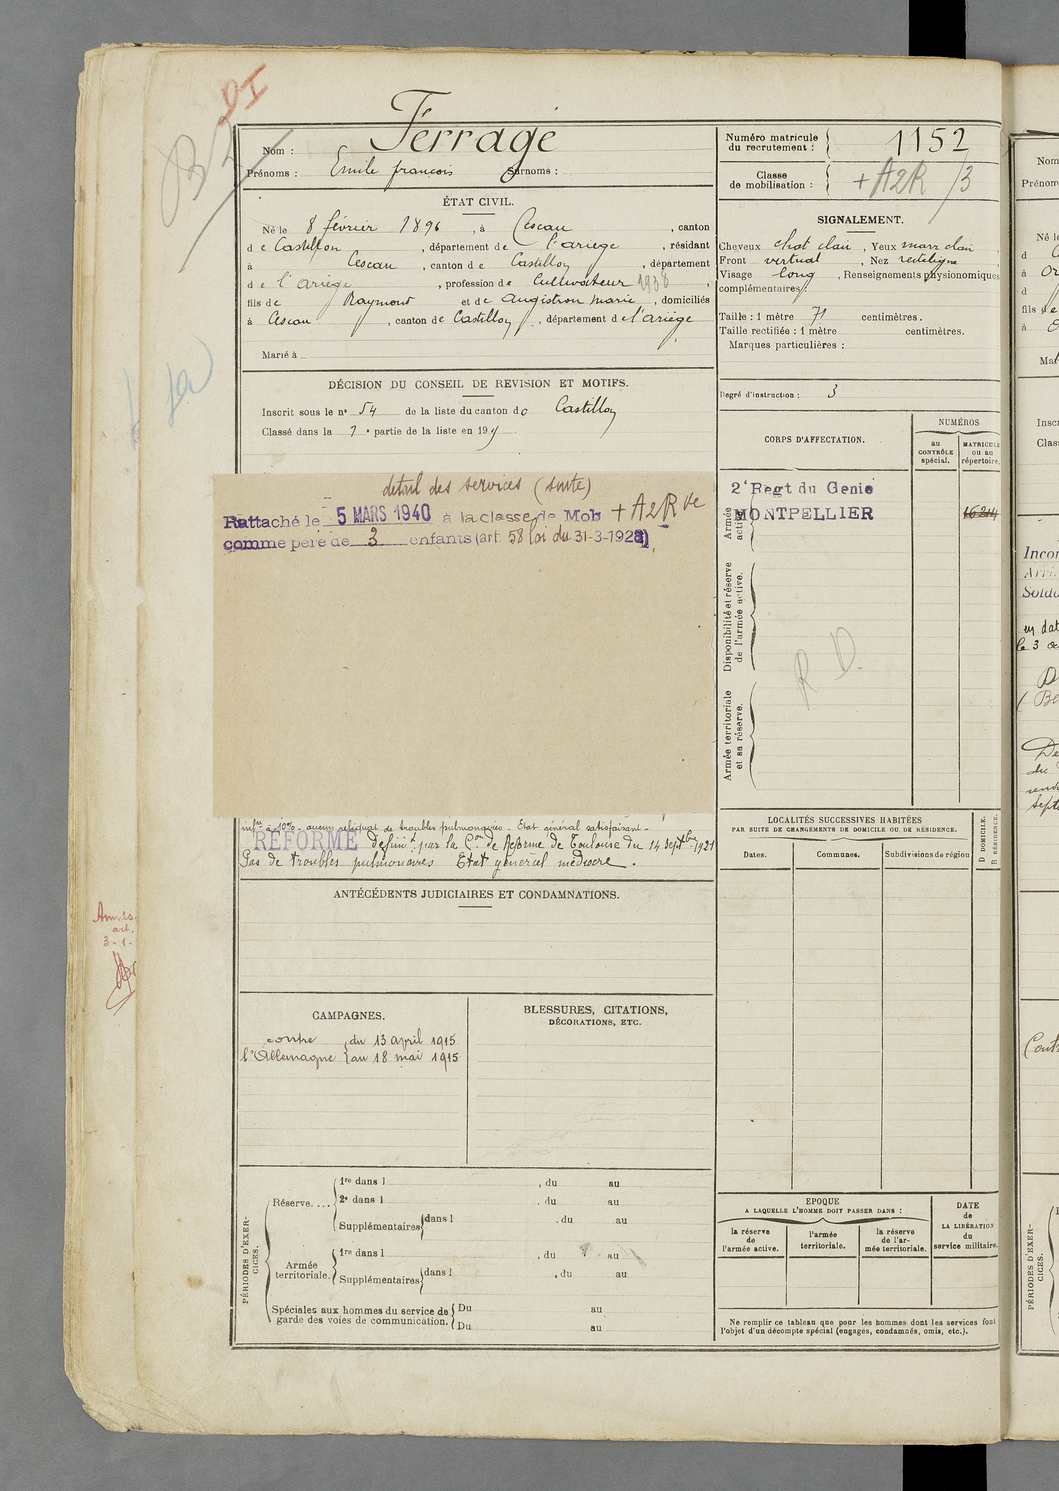 DI
Nom : Ferrage
Prénoms : Emile françois Surnoms :
Numéro matricule du recrutement : 1152
Classe de mobilisation : + A2R /3
ÉTAT CIVIL.
Né le 8 février 1896, à Cescau, canton
de Castillon, département de l'ariège, résidant
à Cescau, canton de Castillon, département
de l'ariège, profession de Cultivateur 1938,
fils de Raymond et de Augistrou marie, domiciliés
à Cescau, canton de Castillon, département de l'ariège
Marié à
SIGNALEMENT.
Cheveux chat clair, Yeux marr clair,
Front vertical, Nez rectiligne,
Visage long, Renseignements physionomiques
complémentaires
Taille : 1 mètre 71 centimètres.
Taille rectifiée : 1 mètre centimètres.
Marques particulières :
Degré d'instruction : 3
DÉCISION DU CONSEIL DE REVISION ET MOTIFS.
Inscrit sous le nº 54 de la liste du canton de Castillon
Classé dans la 1e partie de la liste en 19
détail des services (suite)
Rattaché le 5 MARS 1940 à la classe de Mob + A2R de
comme père de 3 enfants (art. 58 loi du 31-3-1928)
CORPS D'AFFECTATION.
NUMÉROS
au CONTRÔLE spécial.
MATRICULE ou au répertoire.
Armée active.
2e Regt du Genie
MONTPELLIER
Disponibilité et réserve de l'armée active.
R D.
Armée territoriale et sa réserve.
infre à 10%. aucun reliquat de troubles pulmonaires - Etat général satisfaisant -
RÉFORMÉ définit. par la Con de Réforme de Toulouse du 14 septbre 1921
Pas de troubles pulmonaires Etat général médiocre.
ANTÉCÉDENTS JUDICIAIRES ET CONDAMNATIONS.
LOCALITÉS SUCCESSIVES HABITÉES
PAR SUITE DE CHANGEMENTS DE DOMICILE OU DE RÉSIDENCE.
Dates.
Communes.
Subdivisions de région
D DOMICILE.
R RÉSIDENCE.
CAMPAGNES.
contre l'Allemagne
du 13 april 1915
au 18 mai 1915
BLESSURES, CITATIONS,
DÉCORATIONS, ETC.
PÉRIODES D'EXERCICES.
Réserve....
1re dans l , du au
2e dans l , du au
Supplémentaires dans l , du au
Armée territoriale.
1re dans l , du au
Supplémentaires dans l , du au
Spéciales aux hommes du service de garde des voies de communication.
Du au
Du au
EPOQUE
A LAQUELLE L'HOMME DOIT PASSER DANS :
la réserve de l'armée active.
l'armée territoriale.
la réserve de l'armée territoriale.
DATE de LA LIBÉRATION du service militaire.
Ne remplir ce tableau que pour les hommes dont les services font
l'objet d'un décompte spécial (engagés, condamnés, omis, etc.).